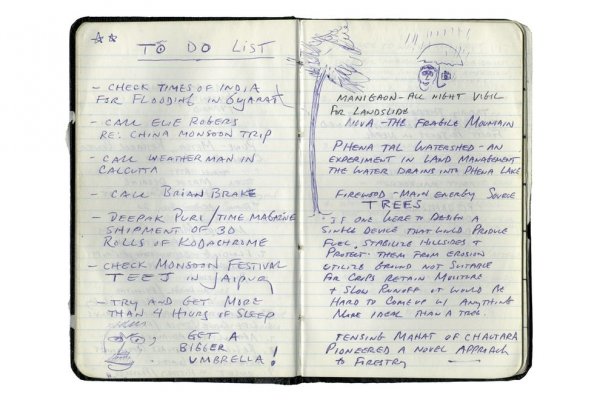 TO DO LIST
- CHECK TIMES OF INDIA
FOR FLOODING IN GUJARAT
- CALL ELIE ROGERS
RE: CHINA MONSOON TRIP
- CALL WEATHERMAN IN
CALCUTTA
- CALL BRIAN BRAKE
- DEEPAK PURI / TIME MAGAZINE
SHIPMENT OF 30
ROLLS OF KODACHROME
- CHECK MONSOON FESTIVAL
TEEJ IN JAIPUR
- TRY AND GET MORE
THAN 4 HOURS OF SLEEP
GET A
BIGGER
UMBRELLA!
MANIGAON - ALL NIGHT VIGIL
FOR LANDSLIDE
NOVA - THE FRAGILE MOUNTAIN
PHENA TAL WATERSHED - AN
EXPERIMENT IN LAND MANAGEMENT
THE WATER DRAINS INTO PHENA LAKE
FIREWOOD - MAIN ENERGY SOURCE
TREES
IF ONE WERE TO DESIGN A
SINGLE DEVICE THAT WOULD PRODUCE
FUEL, STABILIZE HILLSIDES +
PROTECT THEM FROM EROSION
UTILIZE GROUND NOT SUITABLE
FOR CROPS RETAIN MOISTURE
+ SLOW RUNOFF IT WOULD BE
HARD TO COME UP W/ ANYTHING
MORE IDEAL THAN A TREE.
TENSING MAHAT OF CHAUTARA
PIONEERED A NOVEL APPROACH
TO FORESTRY